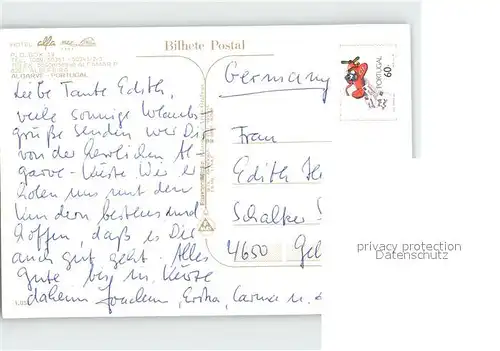 HOTEL alfa mar
Bilhete Postal
P.O. BOX 19
ALGARVE - PORTUGAL
PORTUGAL
60
Germany
Liebe Tante Edith,
viele sonnige Urlaubs-
grüße senden wir Dir
von der herrlichen Al-
garve-Küste. Wir er-
holen uns mit den
Kindern bestens und
hoffen, daß es Dir
auch gut geht. Alles
Gute bis in Kürze
daheim Joachim, Erika, Carina u.
Frau
Edith
Schalker
4650 Gel
privacy protection
Datenschutz